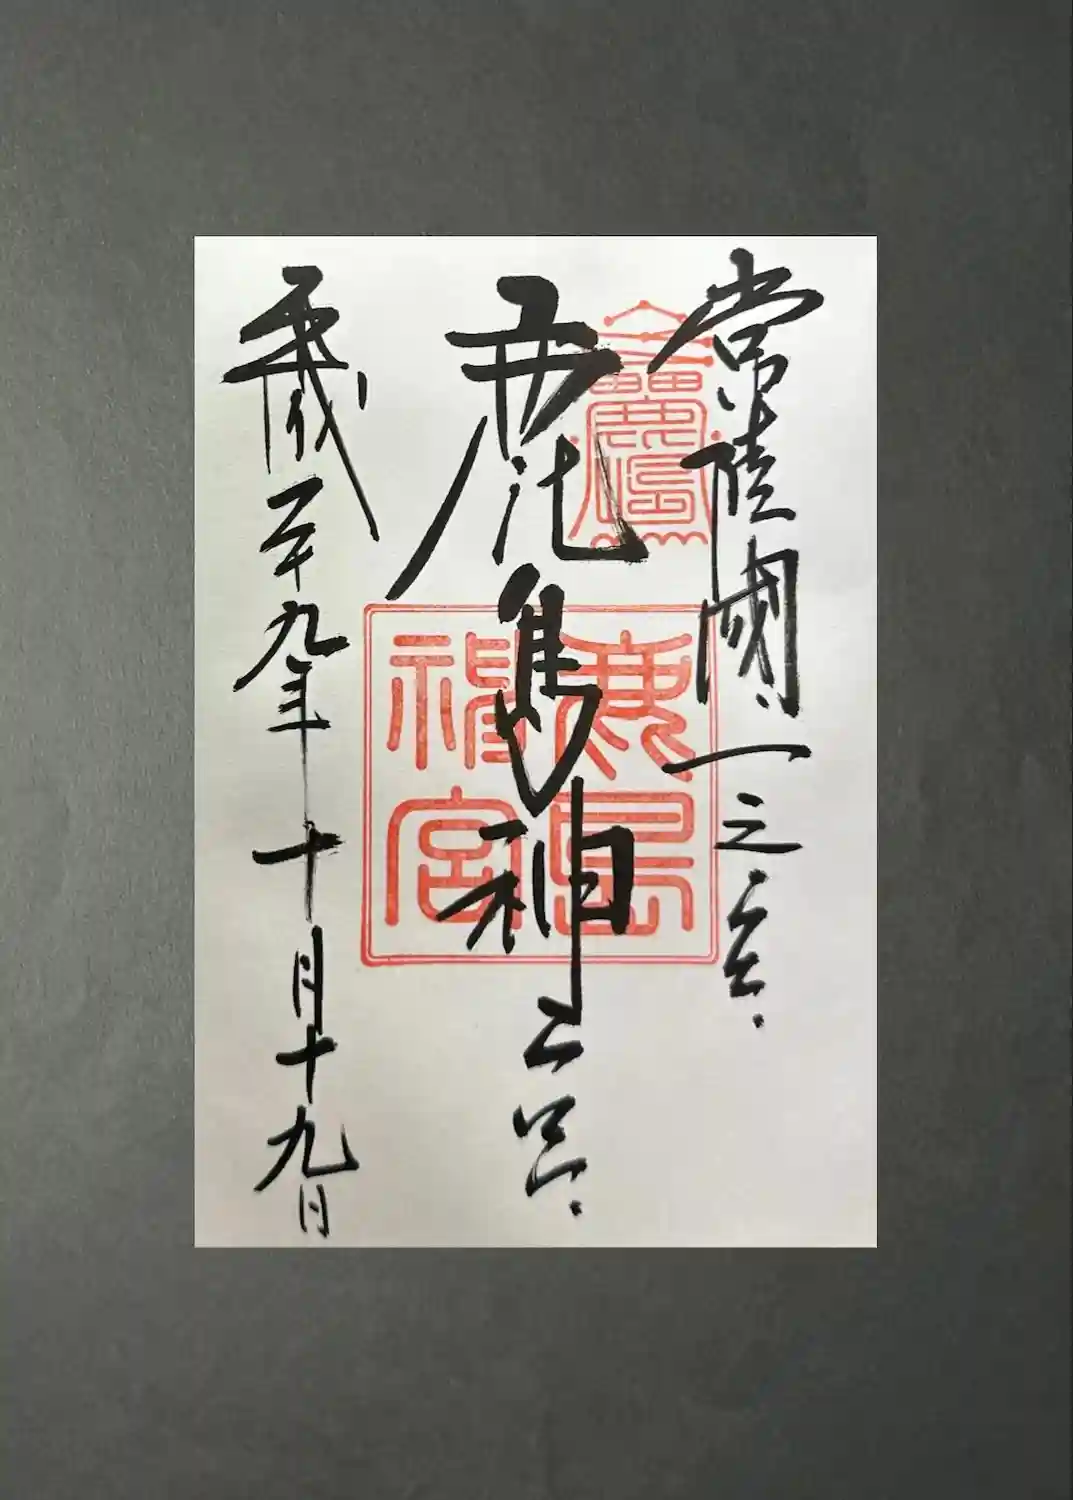 常陸國一之宮
鹿島神宮
平成二十九年十月十九日
鹿島
神宮